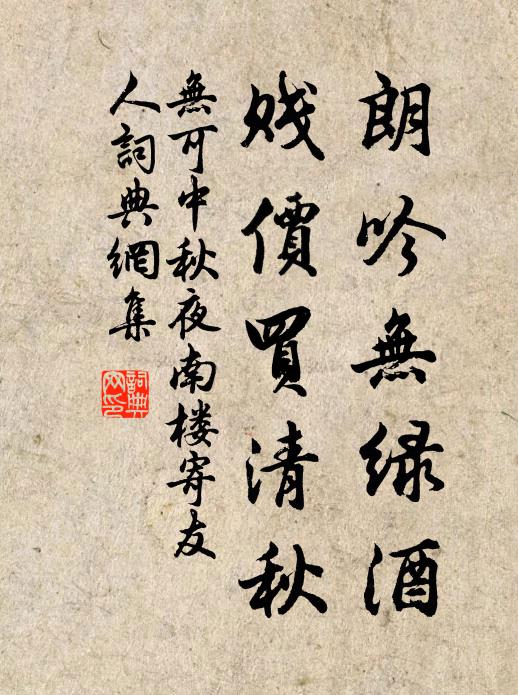 朗吟無緑酒
賤價買清秋
無可中秋夜南楼寄友
人詞典網集
詞典
网印